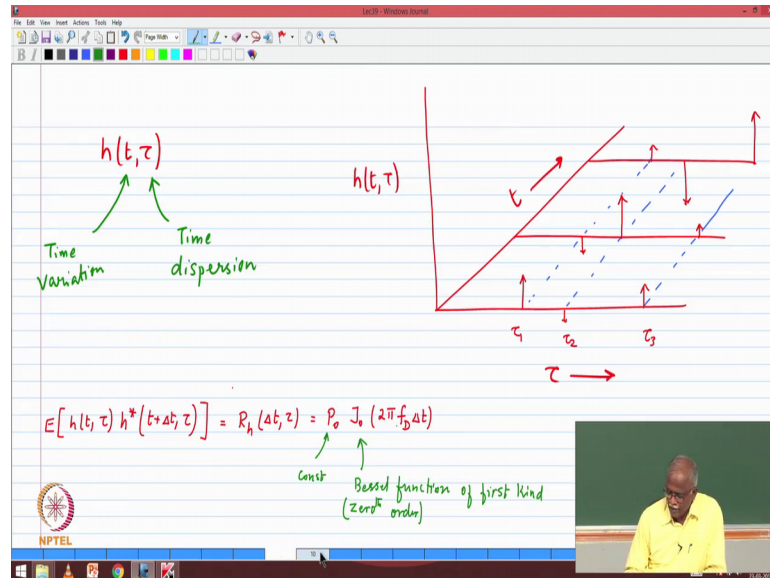 Lec39 - Windows Journal
File Edit View Insert Actions Tools Help
Page Width
B I
h(t,τ)
Time variation
Time dispersion
h(t,τ)
t
τ₁ τ₂ τ₃
τ →
E[h(t,τ) h*(t+Δt,τ)] = R_h(Δt,τ) = P₀ J₀(2π f_D Δt)
Const
Bessel function of first kind
(zeroᵗʰ order)
NPTEL
10